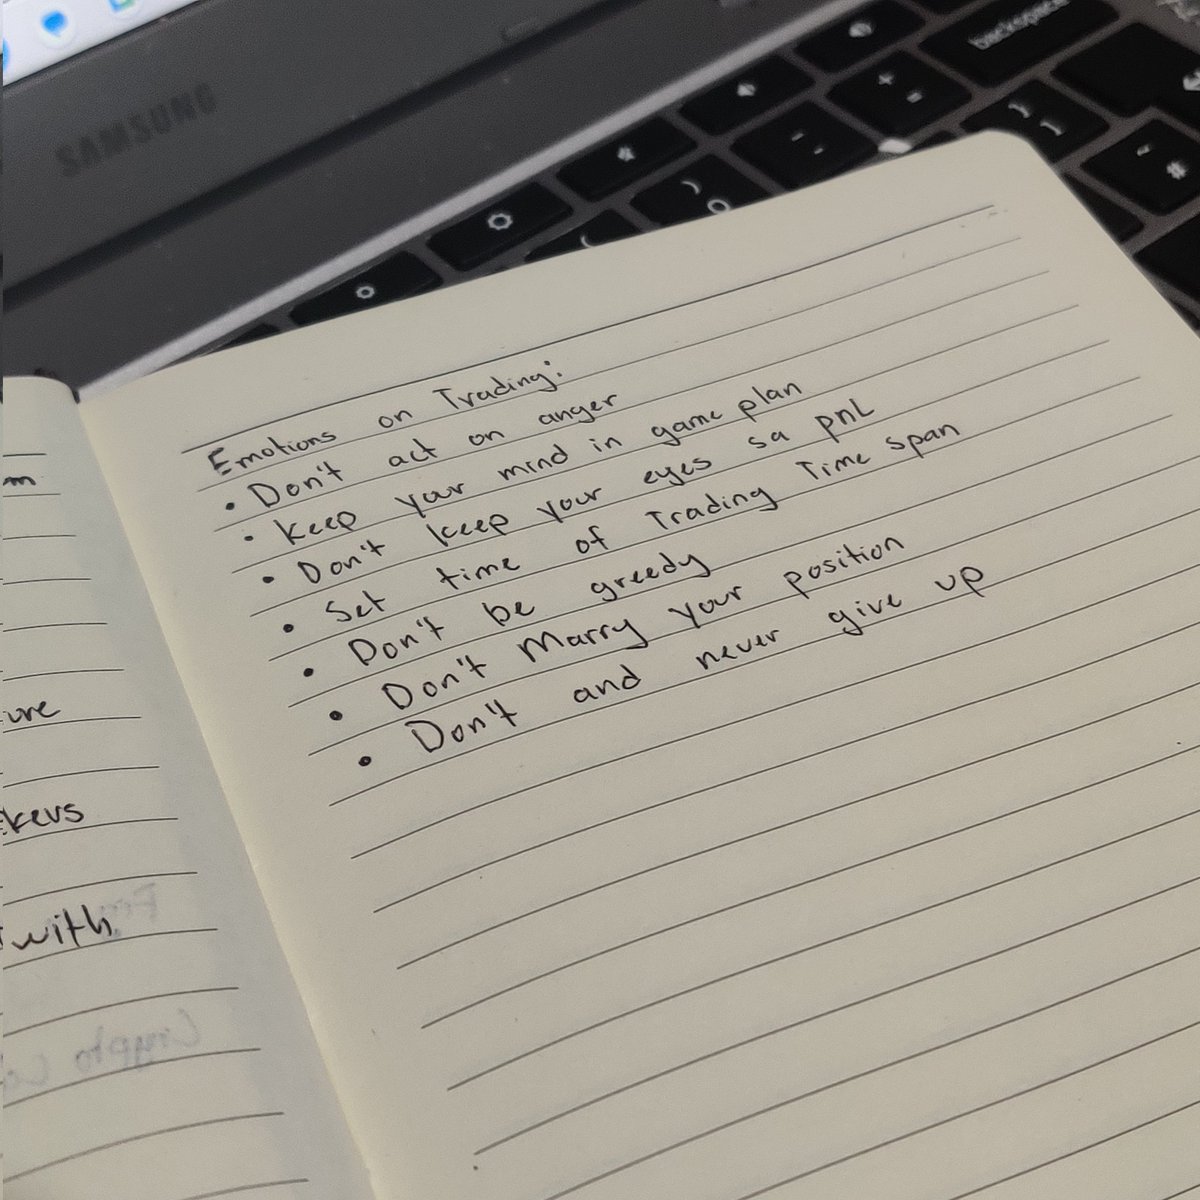 SAMSUNG
backspace
Emotions on Trading:
• Don't act on anger
• Keep your mind in game plan
• Don't keep your eyes sa pnL
• Set time of Trading Time span
• Don't be greedy
• Don't Marry your position
• Don't and never give up
ure
kers
with
Crypto